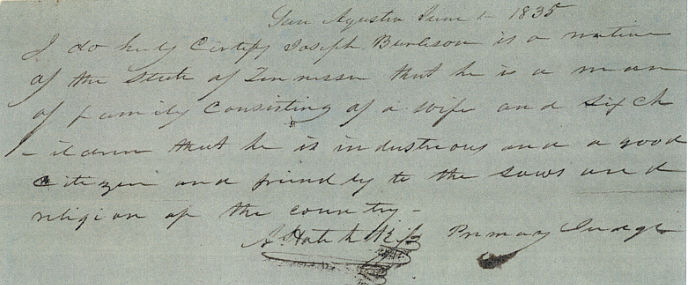 San Agustin June 1 1835
I do herby Certify Joseph Burleson is a native
of the State of Tennessee that he is a man
of family Consisting of a wife and six Ch
-ildren that he is industrious and a good
citizen and friendly to the Laws and
religion of the country -
A. Hotchkiss Primary Judge